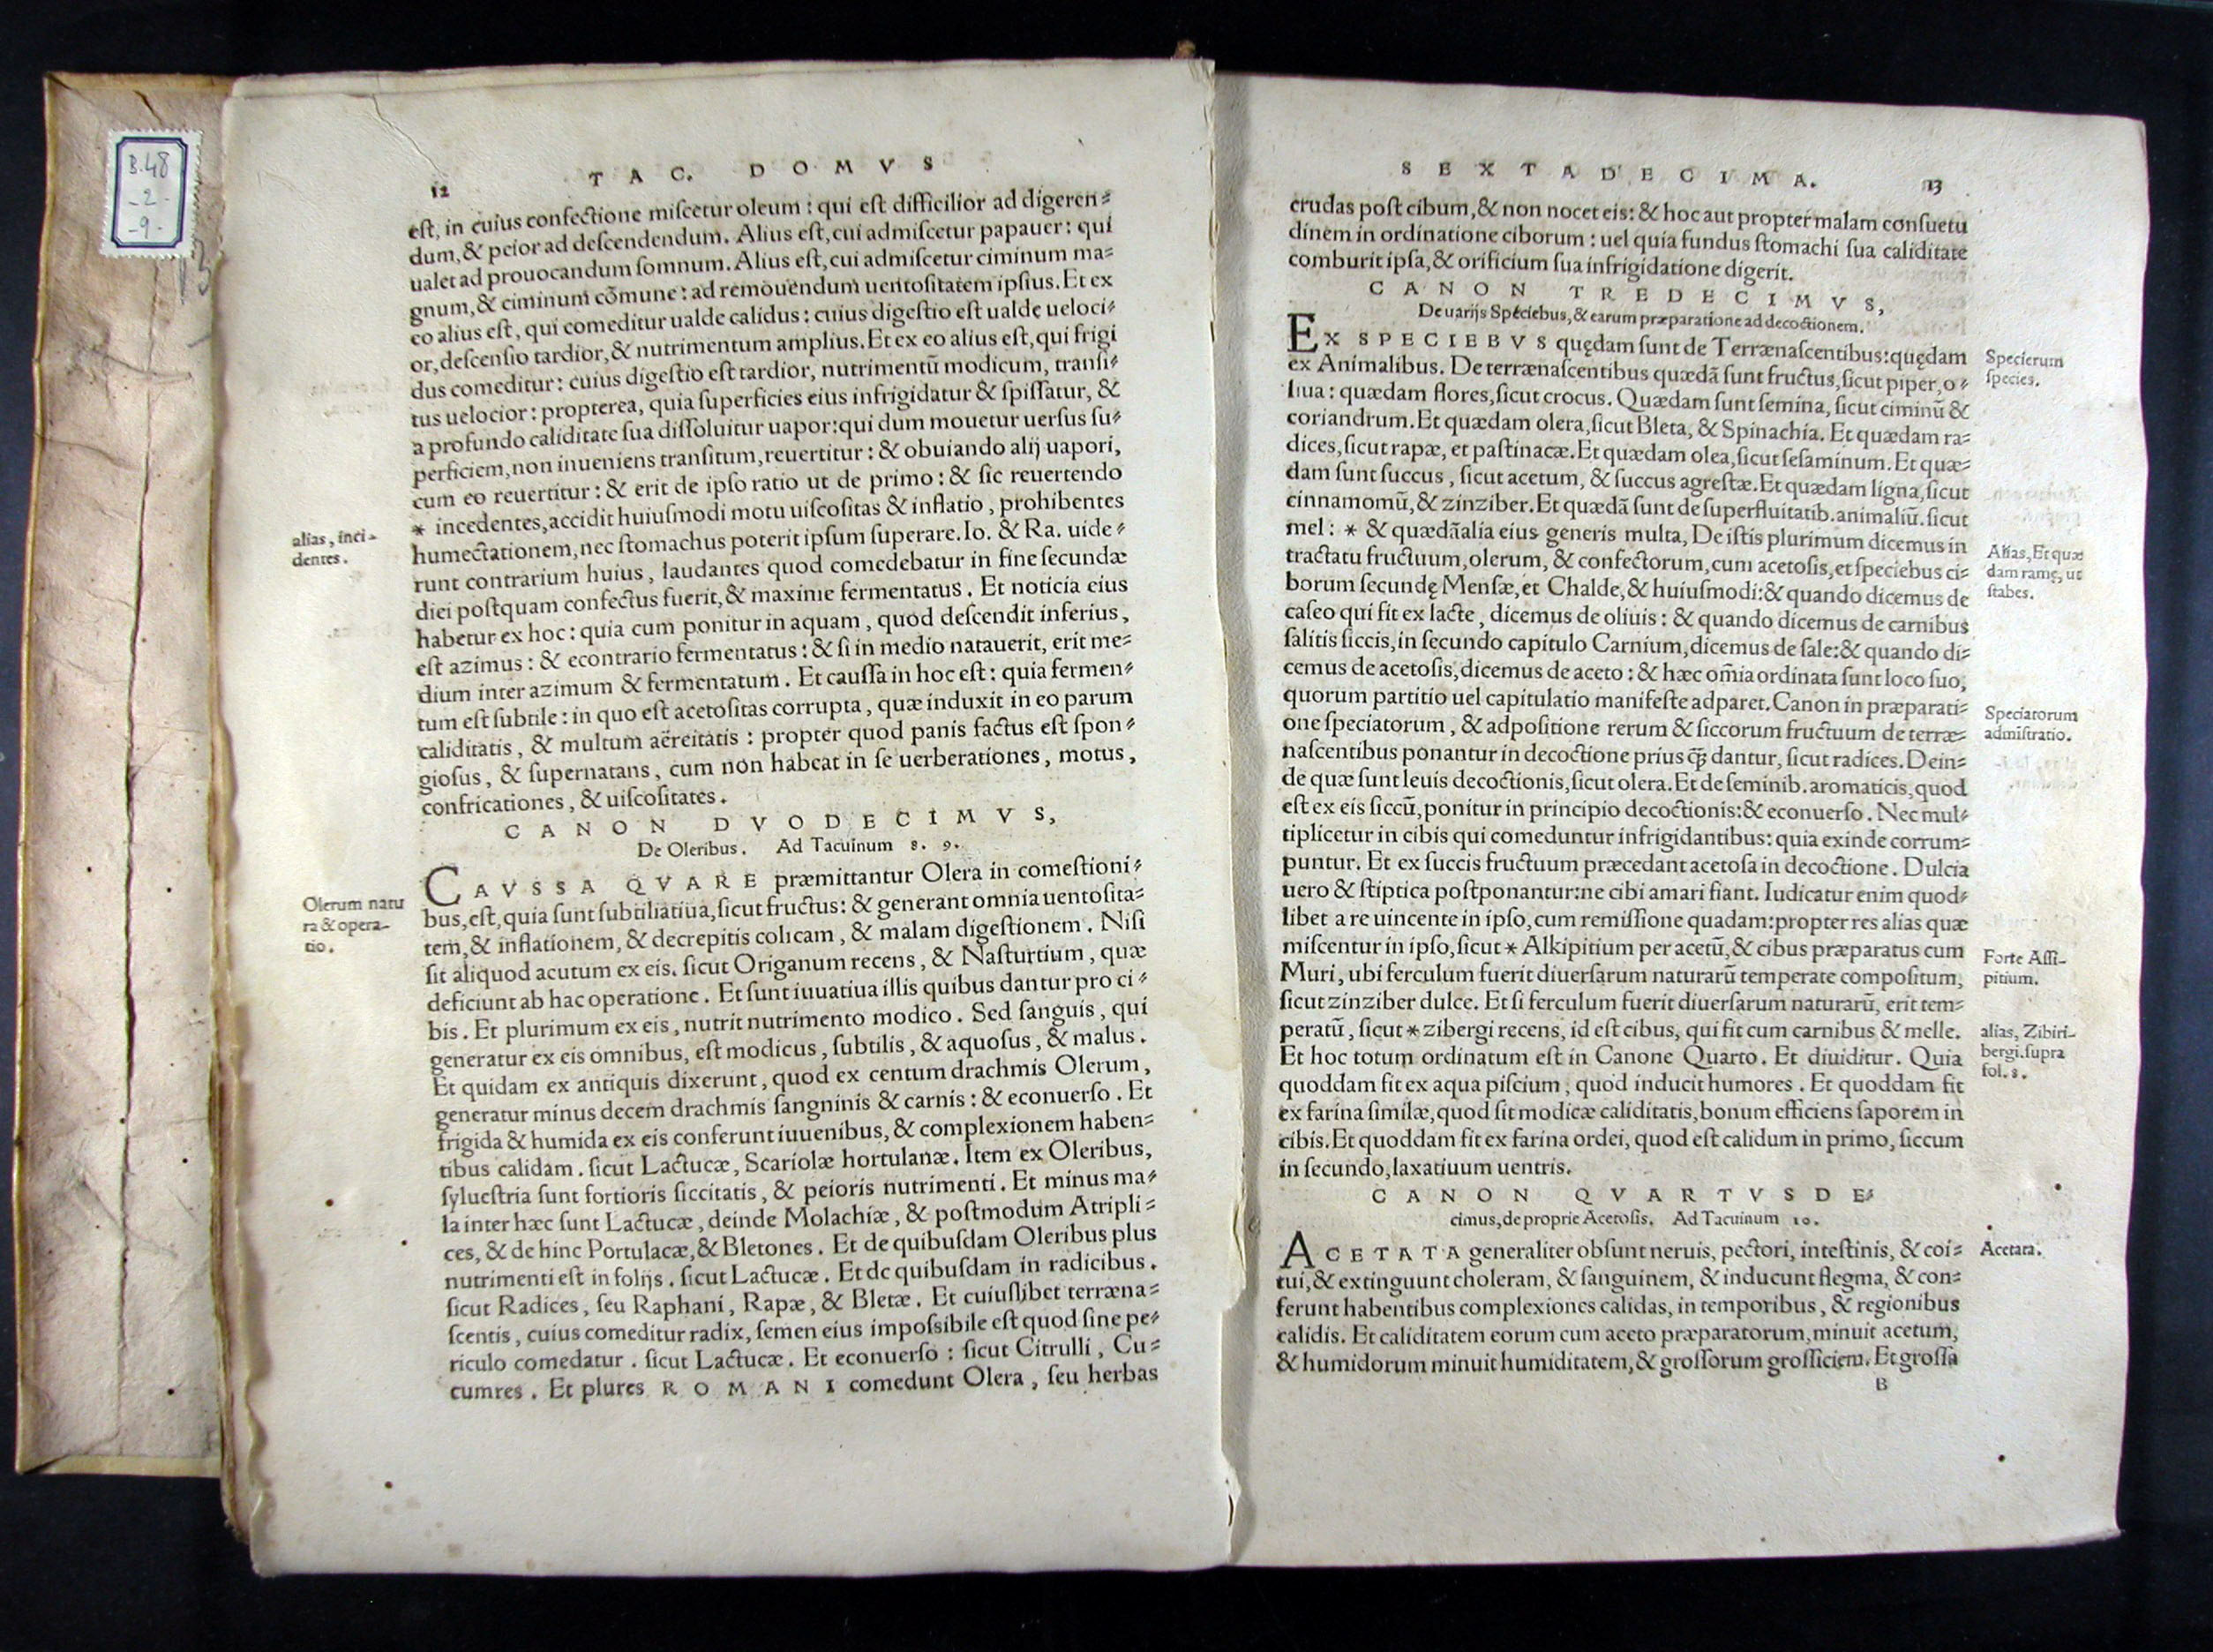 B.48
-2-
-9-
TAC. DOMVS
12
eſt, in cuius confectione miſcetur oleum : qui eſt difficilior ad digeren⸗
dum, & peior ad deſcendendum. Alius eſt, cui admiſcetur papauer : qui
ualet ad prouocandum ſomnum. Alius eſt, cui admiſcetur ciminum ma⸗
gnum, & ciminum cõmune : ad remouendum uentoſitatem ipſius. Et ex
eo alius eſt, qui comeditur ualde calidus : cuius digeſtio eſt ualdę ueloci⸗
or, deſcenſio tardior, & nutrimentum amplius. Et ex eo alius eſt, qui frigi
dus comeditur : cuius digeſtio eſt tardior, nutrimentũ modicum, tranſi⸗
tus uelocior : propterea, quia ſuperficies eius infrigidatur & ſpiſſatur, &
a profundo caliditate ſua diſſoluitur uapor : qui dum mouetur uerſus ſu⸗
perficiem, non inueniens tranſitum, reuertitur : & obuiando alij uapori,
cum eo reuertitur : & erit de ipſo ratio ut de primo : & ſic reuertendo
* incedentes, accidit huiuſmodi motu uiſcoſitas & inflatio, prohibentes
humectationem, nec ſtomachus poterit ipſum ſuperare. Io. & Ra. uide⸗
runt contrarium huius, laudantes quod comedebatur in fine ſecundæ
diei poſtquam confectus fuerit, & maxime fermentatus. Et noticia eius
habetur ex hoc : quia cum ponitur in aquam, quod deſcendit inferius,
eſt azimus : & econtrario fermentatus : & ſi in medio natauerit, erit me⸗
dium inter azimum & fermentatum. Et cauſſa in hoc eſt : quia fermen⸗
tum eſt ſubtile : in quo eſt acetoſitas corrupta, quæ induxit in eo parum
caliditatis, & multum aëreitatis : propter quod panis factus eſt ſpon⸗
gioſus, & ſupernatans, cum non habeat in ſe uerberationes, motus,
confricationes, & uiſcoſitates.
alias, inci⸗
dentes.
CANON DVODECIMVS,
De Oleribus. Ad Tacuinum 8. 9.
CAVSSA QVARE præmittantur Olera in comeſtioni⸗
bus, eſt, quia ſunt ſubtiliatiua, ſicut fructus : & generant omnia uentoſita⸗
tem, & inflationem, & decrepitis colicam, & malam digeſtionem. Niſi
ſit aliquod acutum ex eis. ſicut Origanum recens, & Naſturtium, quæ
deficiunt ab hac operatione. Et ſunt iuuatiua illis quibus dantur pro ci⸗
bis. Et plurimum ex eis, nutrit nutrimento modico. Sed ſanguis, qui
generatur ex eis omnibus, eſt modicus, ſubtilis, & aquoſus, & malus.
Et quidam ex antiquis dixerunt, quod ex centum drachmis Olerum,
generatur minus decem drachmis ſangninis & carnis : & econuerſo. Et
frigida & humida ex eis conferunt iuuenibus, & complexionem haben⸗
tibus calidam. ſicut Lactucæ, Scariolæ hortulanæ. Item ex Oleribus,
ſylueſtria ſunt fortioris ſiccitatis, & peioris nutrimenti. Et minus ma⸗
la inter hæc ſunt Lactucæ, deinde Molachiæ, & poſtmodum Atripli⸗
ces, & de hinc Portulacæ, & Bletones. Et de quibuſdam Oleribus plus
nutrimenti eſt in folijs. ſicut Lactucæ. Et de quibuſdam in radicibus.
ſicut Radices, ſeu Raphani, Rapæ, & Bletæ. Et cuiuſlibet terræna⸗
ſcentis, cuius comeditur radix, ſemen eius impoſsibile eſt quod ſine pe⸗
riculo comedatur. ſicut Lactucæ. Et econuerſo : ſicut Citrulli, Cu⸗
cumres. Et plures ROMANI comedunt Olera, ſeu herbas
Olerum natu
ra & opera-
tio.
SEXTADECIMA.
13
crudas poſt cibum, & non nocet eis : & hoc aut propter malam conſuetu
dinem in ordinatione ciborum : uel quia fundus ſtomachi ſua caliditate
comburit ipſa, & orificium ſua infrigidatione digerit.
CANON TREDECIMVS,
De uarijs Speciebus, & earum præparatione ad decoctionem.
EX SPECIEBVS quędam ſunt de Terrænaſcentibus : quędam
ex Animalibus. De terrænaſcentibus quædã ſunt fructus, ſicut piper, o⸗
liua : quædam flores, ſicut crocus. Quædam ſunt ſemina, ſicut ciminũ &
coriandrum. Et quædam olera, ſicut Bleta, & Spinachia. Et quædam ra⸗
dices, ſicut rapæ, et paſtinacæ. Et quædam olea, ſicut ſeſaminum. Et quæ⸗
dam ſunt ſuccus, ſicut acetum, & ſuccus agreſtæ. Et quædam ligna, ſicut
cinnamomũ, & zinziber. Et quædã ſunt de ſuperfluitatib. animaliũ. ſicut
mel : * & quædã alia eius generis multa, De iſtis plurimum dicemus in
tractatu fructuum, olerum, & confectorum, cum acetoſis, et ſpeciebus ci⸗
borum ſecundę Menſæ, et Chalde, & huiuſmodi : & quando dicemus de
caſeo qui fit ex lacte, dicemus de oliuis : & quando dicemus de carnibus
ſalitis ſiccis, in ſecundo capitulo Carnium, dicemus de ſale : & quando di⸗
cemus de acetoſis, dicemus de aceto : & hæc om̃ia ordinata ſunt loco ſuo,
quorum partitio uel capitulatio manifeſte adparet. Canon in præparati⸗
one ſpeciatorum, & adpoſitione rerum & ſiccorum fructuum de terræ⸗
naſcentibus ponantur in decoctione prius ꝗ̃ dantur, ſicut radices. Dein⸗
de quæ ſunt leuis decoctionis, ſicut olera. Et de ſeminib. aromaticis, quod
eſt ex eis ſiccũ, ponitur in principio decoctionis : & econuerſo. Nec mul⸗
tiplicetur in cibis qui comeduntur infrigidantibus : quia exinde corrum⸗
puntur. Et ex ſuccis fructuum præcedant acetoſa in decoctione. Dulcia
uero & ſtiptica poſtponantur : ne cibi amari fiant. Iudicatur enim quod⸗
libet a re uincente in ipſo, cum remiſſione quadam : propter res alias quæ
miſcentur in ipſo, ſicut * Alkipitium per acetũ, & cibus præparatus cum
Muri, ubi ferculum fuerit diuerſarum naturarũ temperate compoſitum,
ſicut zinziber dulce. Et ſi ferculum fuerit diuerſarum naturarũ, erit tem⸗
peratũ, ſicut * zibergi recens, id eſt cibus, qui fit cum carnibus & melle.
Et hoc totum ordinatum eſt in Canone Quarto. Et diuiditur. Quia
quoddam fit ex aqua piſcium, quod inducit humores. Et quoddam fit
ex farina ſimilæ, quod ſit modicæ caliditatis, bonum efficiens ſaporem in
cibis. Et quoddam fit ex farina ordei, quod eſt calidum in primo, ſiccum
in ſecundo, laxatiuum uentris.
Specierum
ſpecies.
Alias, Et quæ
dam ramę, ut
ſtabes.
Speciatorum
admiſtratio.
Forte Aſſi-
pitium.
alias, Zibiri-
bergi. ſupra
fol. 8.
CANON QVARTVSDE⸗
cimus, de proprie Acetoſis. Ad Tacuinum 10.
ACETATA generaliter obſunt neruis, pectori, inteſtinis, & coi⸗
tui, & extinguunt choleram, & ſanguinem, & inducunt flegma, & con⸗
ferunt habentibus complexiones calidas, in temporibus, & regionibus
calidis. Et caliditatem eorum cum aceto præparatorum, minuit acetum,
& humidorum minuit humiditatem, & groſſorum groſſiciem. Et groſſa
Acetata.
B